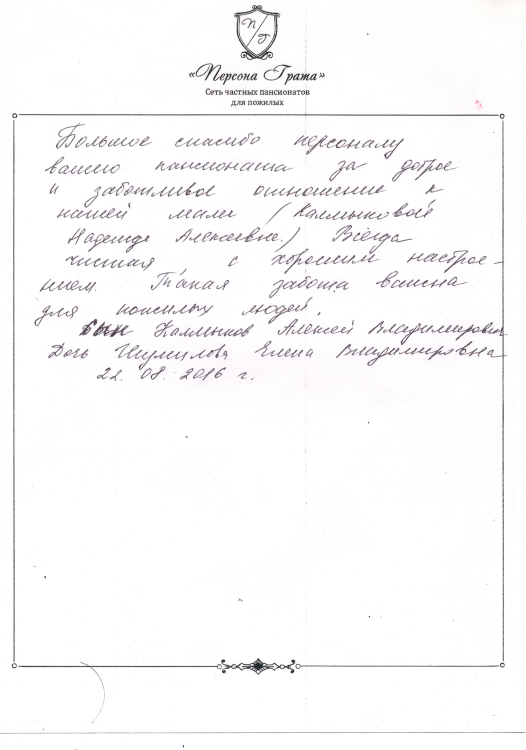 П/Г
«Персона Грата»
Сеть частных пансионатов
для пожилых
Большое спасибо персоналу
вашего пансионата за доброе
и заботливое отношение к
нашей маме (Калмыковой
Надежде Алексеевне.) Всегда
чистая с хорошим настрое-
нием. Такая забота важна
для пожилых людей.
Сын Калмыков Алексей Владимирович
Дочь Шумилова Елена Владимировна
22. 08. 2016 г.